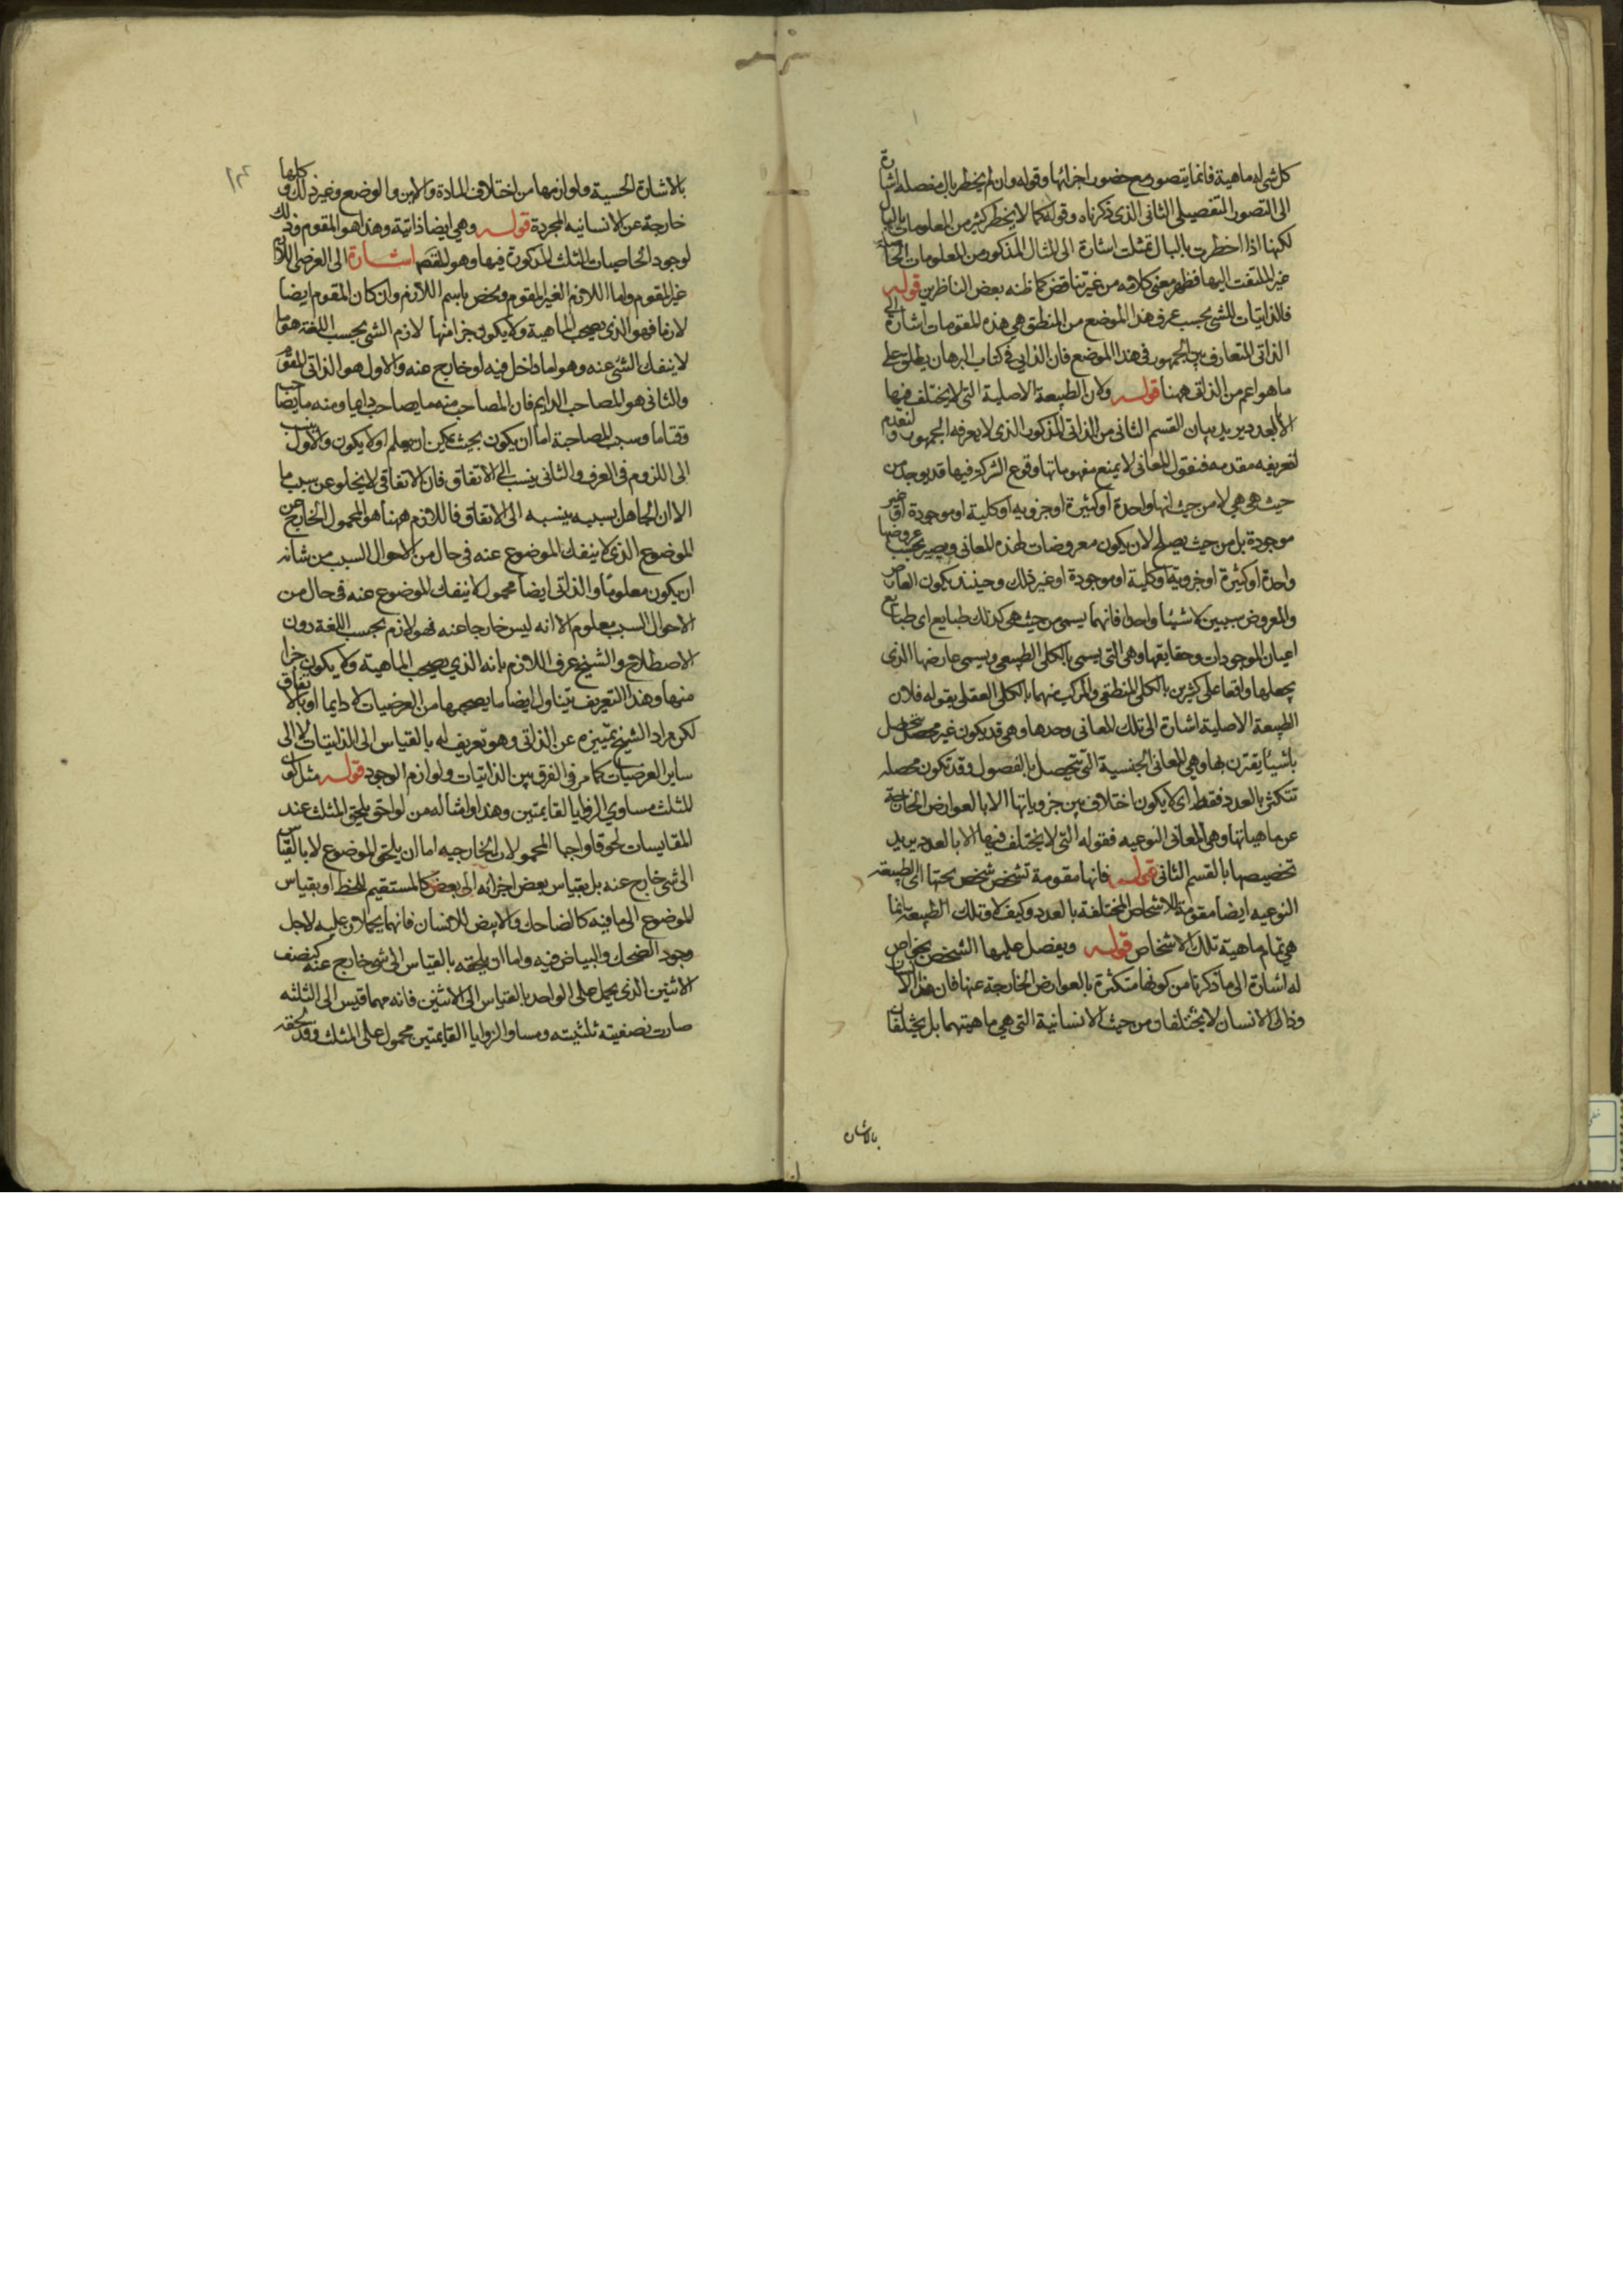 كل شى له ماهية فانما يتصور مع حضور اجزائها وقوله وان لم يخطر بالبال مفصله اشارة
الى التصور التفصيلى الثانى الذى ذكرناه وقوله كما لا يخطر كثير من المعلومات بالبال
لكنها اذا اخطرت بالبال تمثلت اشارة الى المثال المذكور من المعلومات الحاصلة
غير الملتفت اليها فظهر معنى كلامه من غير تناقض كما ظنه بعض الناظرين قوله
فالذاتيات للشى بحسب عرف هذا الموضع من المنطق هى هذه المقومات اشارة الى
الذاتى المتعارف بين الجمهور فى هذا الموضع فان الذاتى فى كتاب البرهان يطلق على
ما هو اعم من الذاتى ههنا قوله ولان الطبيعة الاصلية التى لا يختلف فيها
الا بالعدد يريد بيان القسم الثانى من الذاتى المذكور الذى لا يعرفه الجمهور ولنقدم
لتعريفه مقدمه فنقول المعانى لا يمنع مفهوماتها وقوع الشركة فيها قد يوجد من
حيث هى هى لا من حيث انها واحدة او كثيرة او جزويه او كلية او موجودة او غير
موجودة بل من حيث يصلح لان يكون معروضات لهذه المعانى ويصير بحسب عروضها
واحدة او كثيرة او جزوية او كلية او موجودة او غير ذلك وحينئذ يكون العارض
والمعروض سببين لا شيئا واحدا فانهما يسمى من حيث هى كذلك طبايع اى طبايع
اعيان الموجودات وحقايقها وهى التى يسمى بالكلى الطبيعى ويسمى عارضها الذى
يجعلها واقعا على كثيرين بالكلى المنطقى والمركب منهما بالكلى العقلى بقوله فلان
الطبيعة الاصلية اشارة الى تلك المعانى وحدها وهى قد يكون غير محصل يتحصل
باشيئا يقترن بها وهى المعانى الجنسية التى تتحصل بالفصول وقد تكون محصله
تتكثر بالعدد فقط اى لا يكون اختلاف بين جزوياتها الا بالعوارض الخارجة
عن ماهياتها وهى المعانى النوعيه فقوله التى لا يختلف فيها الا بالعدد يريد
تخصيصها بالقسم الثانى قوله فانها مقومة تشخص شخص تحتها اى الطبيعة
النوعيه ايضا مقومة للاشخاص المختلفة بالعدد وكيف لا وتلك الطبيعة انما
هى تمام ماهية تلك الاشخاص قوله ويفضل عليها الشخص بخواص
له اشارة الى ما ذكرنا من كونها متكثرة بالعوارض الخارجة عنها فان هذا الانسان
وذاك الانسان لا يختلفان من حيث الانسانية التى هى ماهيتهما بل يختلفان
بالاشارة
بالاشارة الحسية ولوازمها من اختلاف المادة والاين والوضع وغير ذلك وكلها
خارجة عن الانسانيه المجردة قوله وهى ايضا ذاتية وهذا هو المقوم وذلك
لوجود الخاصيات الثلث المذكورة فيها وهو المقصد اشارة الى العرضى اللازم
غير المقوم واما اللازم الغير المقوم ويخص باسم اللازم وان كان المقوم ايضا
لازما فهو الذى يصحب الماهية ولا يكون جزا منها لازم الشى بحسب اللغة هو ما
لا ينفك الشى عنه وهو اما داخل فيه او خارج عنه والاول هو الذاتى المقوم
والثانى هو المصاحب الدايم فان المصاحب منه ما يصاحب دايما ومنه ما يصاحب
وقتا ما وسبب المصاحبة اما ان يكون بحيث يمكن ان يعلم او لا يكون والاول ينسب
الى اللزوم فى العرف والثانى ينسب الى الاتفاق فان الاتفاقى لا يخلو عن سبب ما
الا ان الجاهل بسببه ينسبه الى الاتفاق فاللازم ههنا هو المحمول الخارج عن
الموضوع الذى لا ينفك الموضوع عنه فى حال من الاحوال السبب من شانه
ان يكون معلوما والذاتى ايضا محمول لا ينفك الموضوع عنه فى حال من
الاحوال السبب معلوم الا انه ليس خارجا عنه فهو لازم بحسب اللغة دون
الاصطلاح والشيخ عرف اللازم بانه الذى يصحب الماهية ولا يكون جزا
منها وهذا التعريف يتناول ايضا ما يصحبها من العرضيات لا دايما او بالاتفاق
لكن مراد الشيخ تمييزه عن الذاتى وهو تعريف له بالقياس الى الذاتيات لا الى
ساير العرضيات كما مر فى الفرق بين الذاتيات ولوازم الوجود قوله مثل كون
المثلث مساوى الزوايا القايمتين وهذا وامثاله من لواحق يلحق المثلث عند
المقايسات لحوقا واجبا المحمولات الخارجيه اما ان يلحق الموضوع لا بالقياس
الى شى خارج عنه بل بقياس بعض اجزائه الى بعض كالمستقيم للخط او بقياس
الموضوع الى ما فيه كالضاحك والابيض للانسان فانهما يحملان عليه لاجل
وجود الضحك والبياض فيه واما ان يلحقه بالقياس الى شى خارج عنه كنصف
الاثنين الذى يحمل على الواحد بالقياس الى الاثنين فانه مهما قيس الى الثلثه
صارت نصفيته ثلثيته ومساو الزوايا القايمتين محمول على المثلث وقد يلحقه